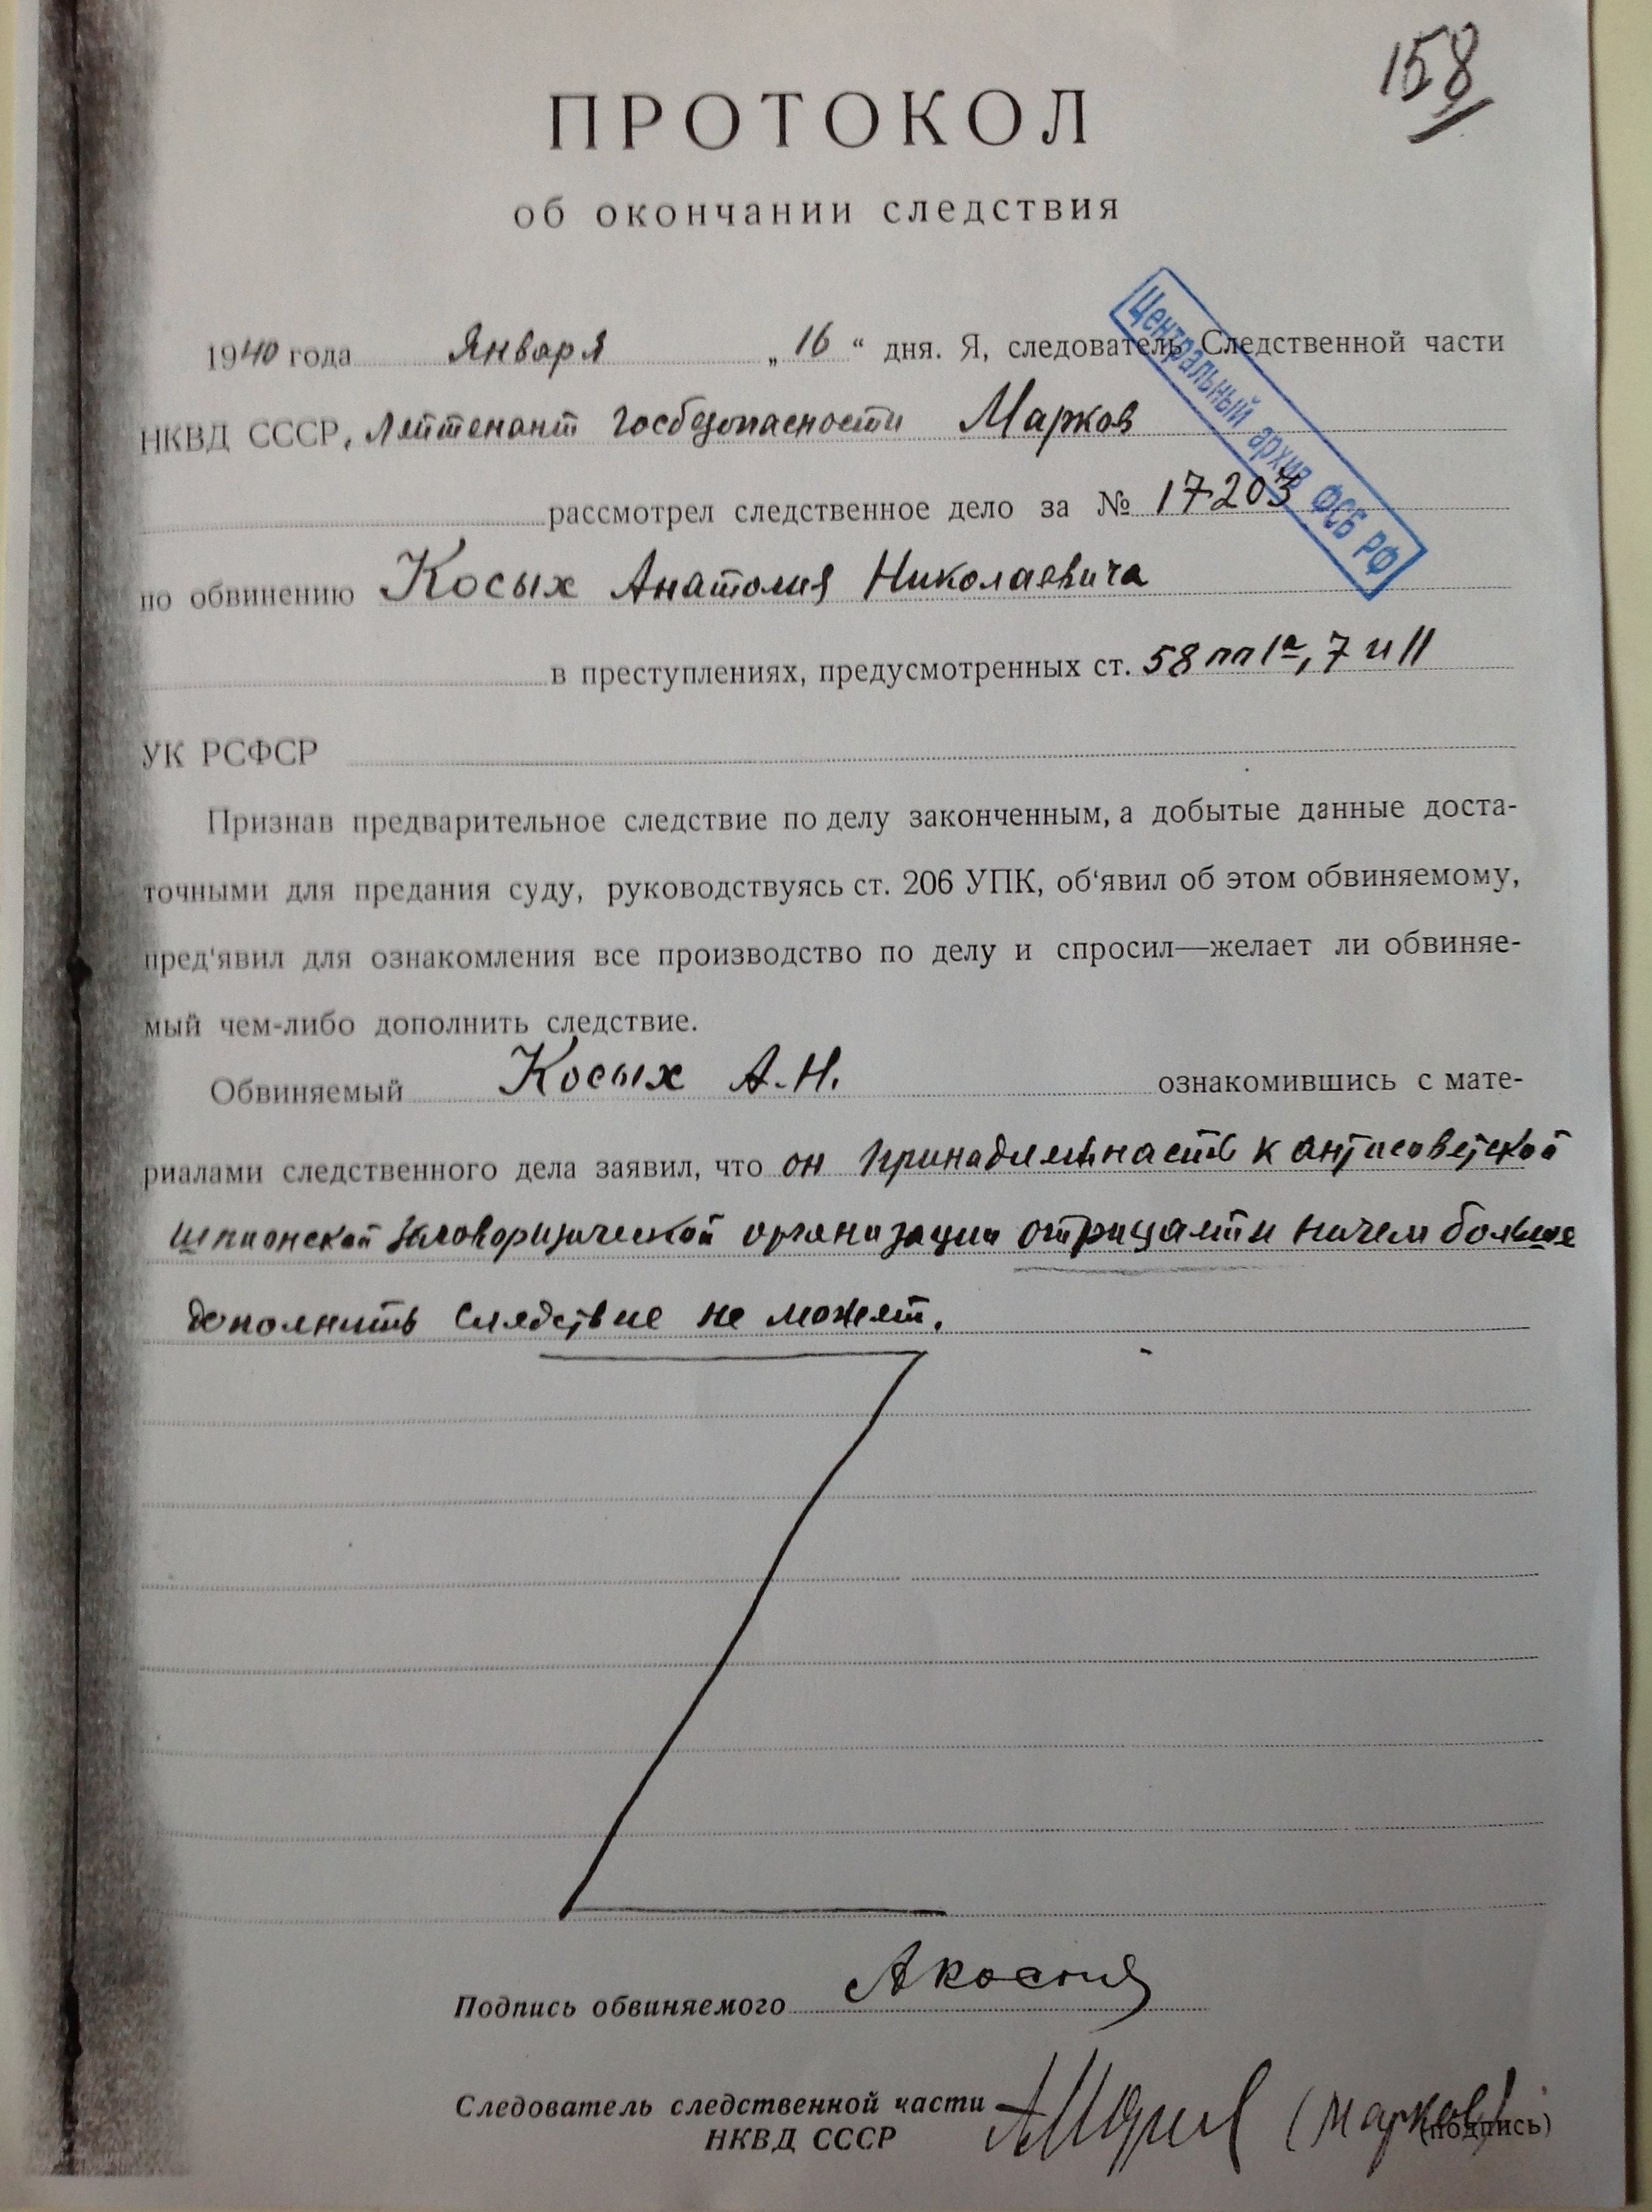 158
ПРОТОКОЛ
об окончании следствия
1940 года Января „16“ дня. Я, следователь Следственной части
НКВД СССР, Лейтенант Госбезопасности Марков
рассмотрел следственное дело за № 17203
по обвинению Косых Анатолия Николаевича
в преступлениях, предусмотренных ст. 58 пп 1а, 7 и 11
УК РСФСР
Центральный архив ФСБ РФ
Признав предварительное следствие по делу законченным, а добытые данные доста-
точными для предания суду, руководствуясь ст. 206 УПК, об‘явил об этом обвиняемому,
пред‘явил для ознакомления все производство по делу и спросил—желает ли обвиняе-
мый чем-либо дополнить следствие.
Обвиняемый Косых А.Н. ознакомившись с мате-
риалами следственного дела заявил, что он принадлежность к антисоветской
шпионской заговорщической организации отрицает и ничем больше
дополнить следствие не может.
Подпись обвиняемого
Следователь следственной части
НКВД СССР (Марков)
(подпись)